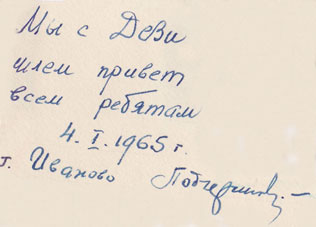 Мы с Деви
шлем привет
всем ребятам
4. I. 1965 г.
г. Иваново